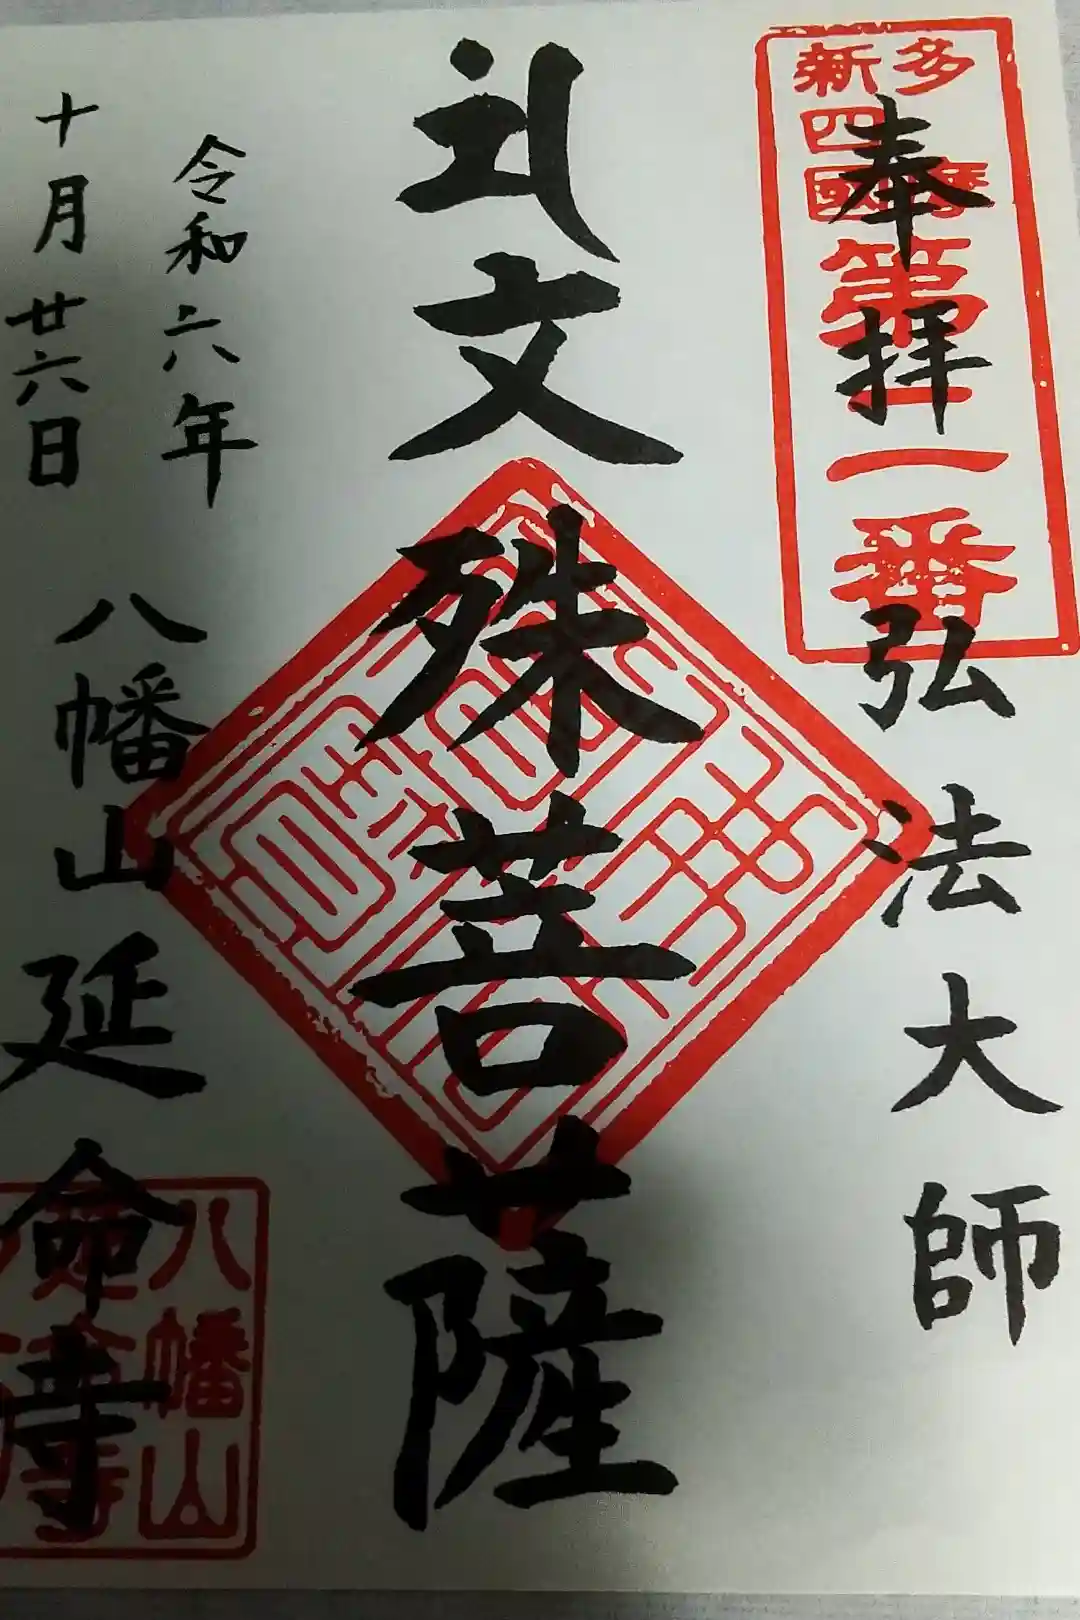 多摩
新四國
第二番
奉拝 弘法大師
礼文殊菩薩
令和六年
十月廿六日
八幡山延命寺
八幡山
延命寺